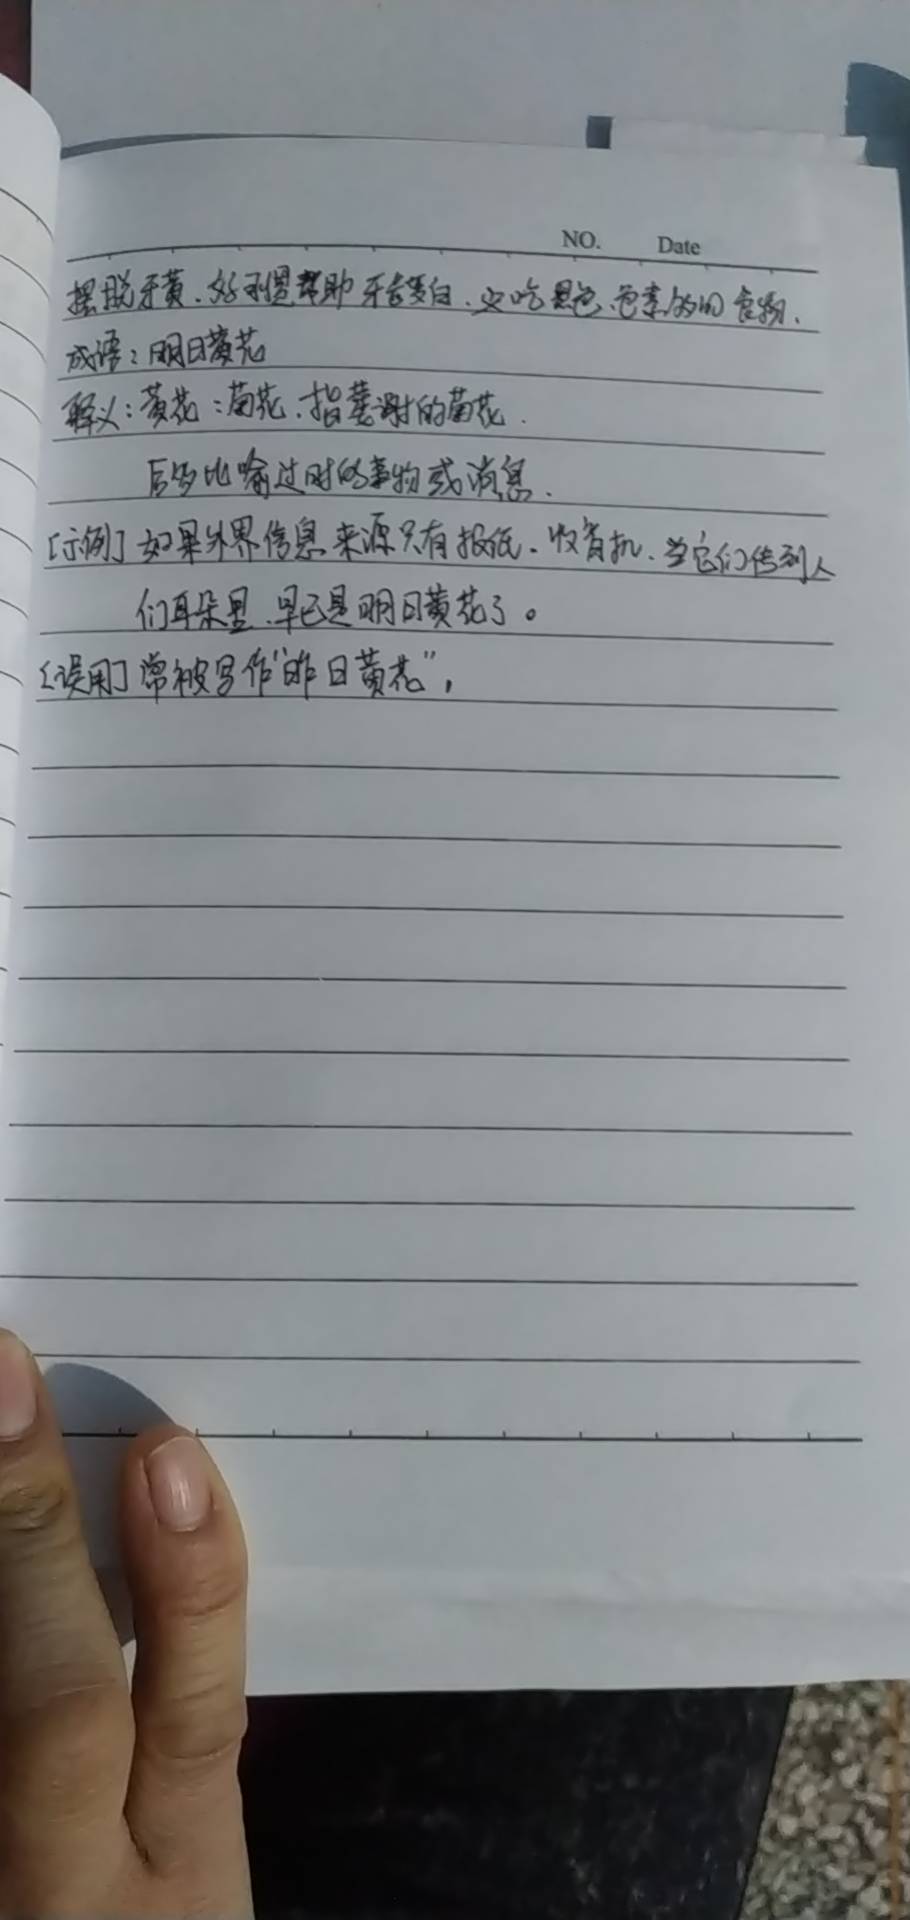 NO. Date
摆脱牙黄、好习惯帮助牙齿变白、少吃黑色、色素的食物、
成语：明日黄花
释义：黄花：菊花、指萎谢的菊花.
后多比喻过时的事物或消息.
[示例] 如果外界信息来源只有报纸、收音机、当它们传到人
们耳朵里、早已是明日黄花了。
[误用] 常被写作"昨日黄花",